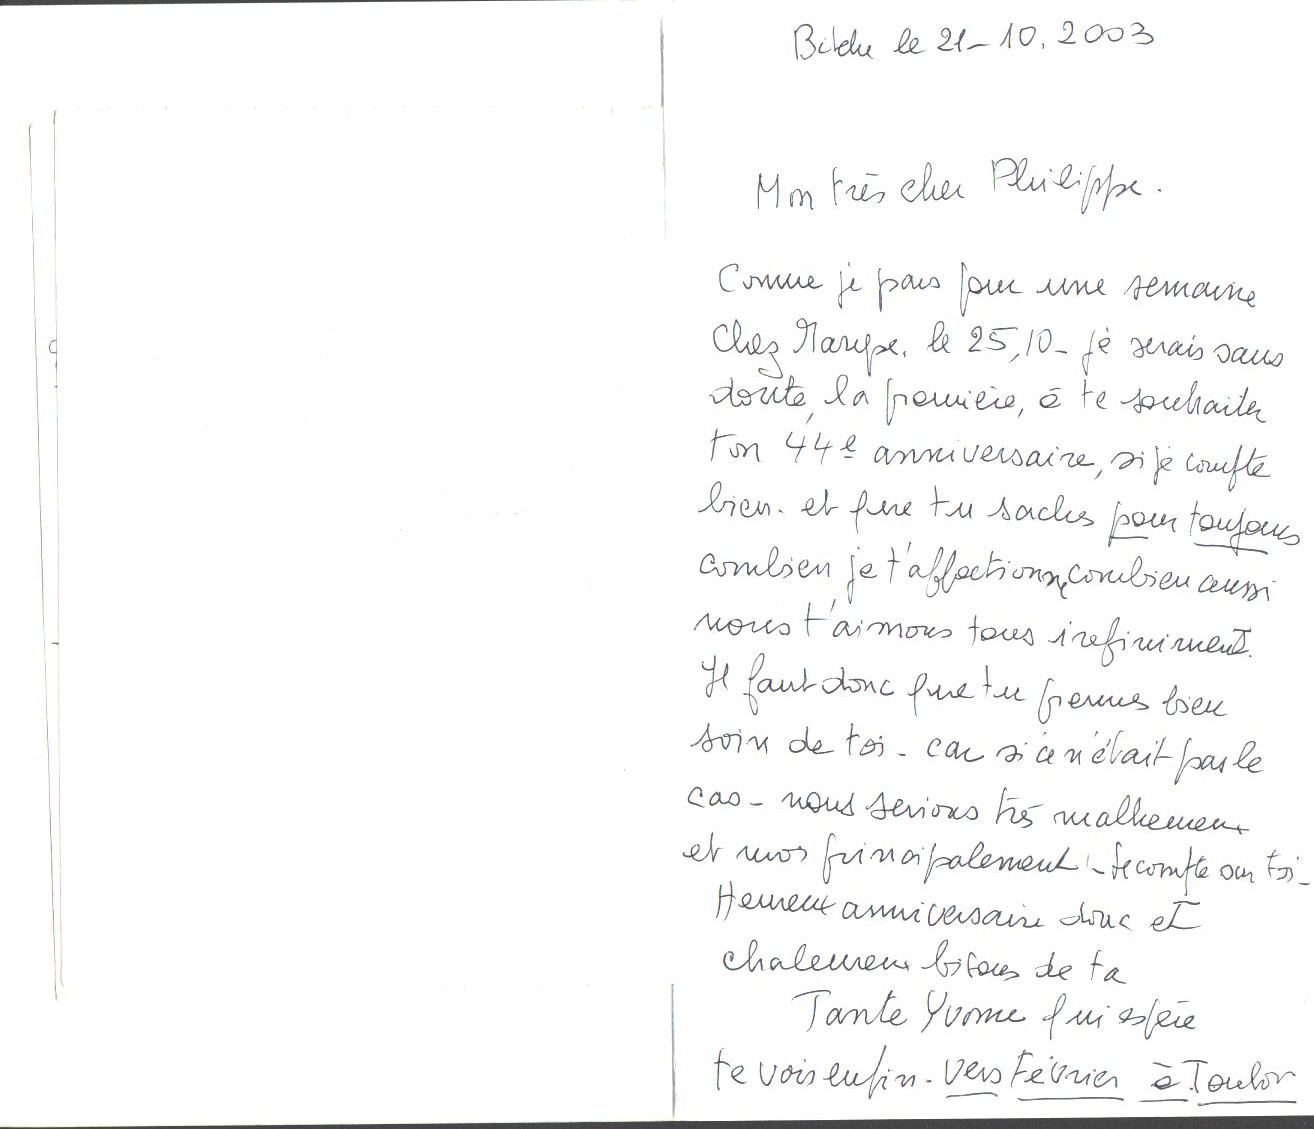 Bitche le 21-10.2003
Mon très cher Philippe.
Comme je pars pour une semaine
chez le 25,10- je serais sans
doute, la première, à te souhaiter
ton 44e anniversaire, si je compte
bien. et que tu saches pour toujours
combien je t'affectionne, combien aussi
nous t'aimons tous infiniment.
Il faut donc que tu prennes bien
soin de toi - car si ce n'était pas le
cas - nous serions très malheureux
et moi principalement ! - Je compte sur toi -
Heureux anniversaire donc et
chaleureux bisous de ta
Tante Yvonne qui espère
te voir enfin - vers Février à Toulon